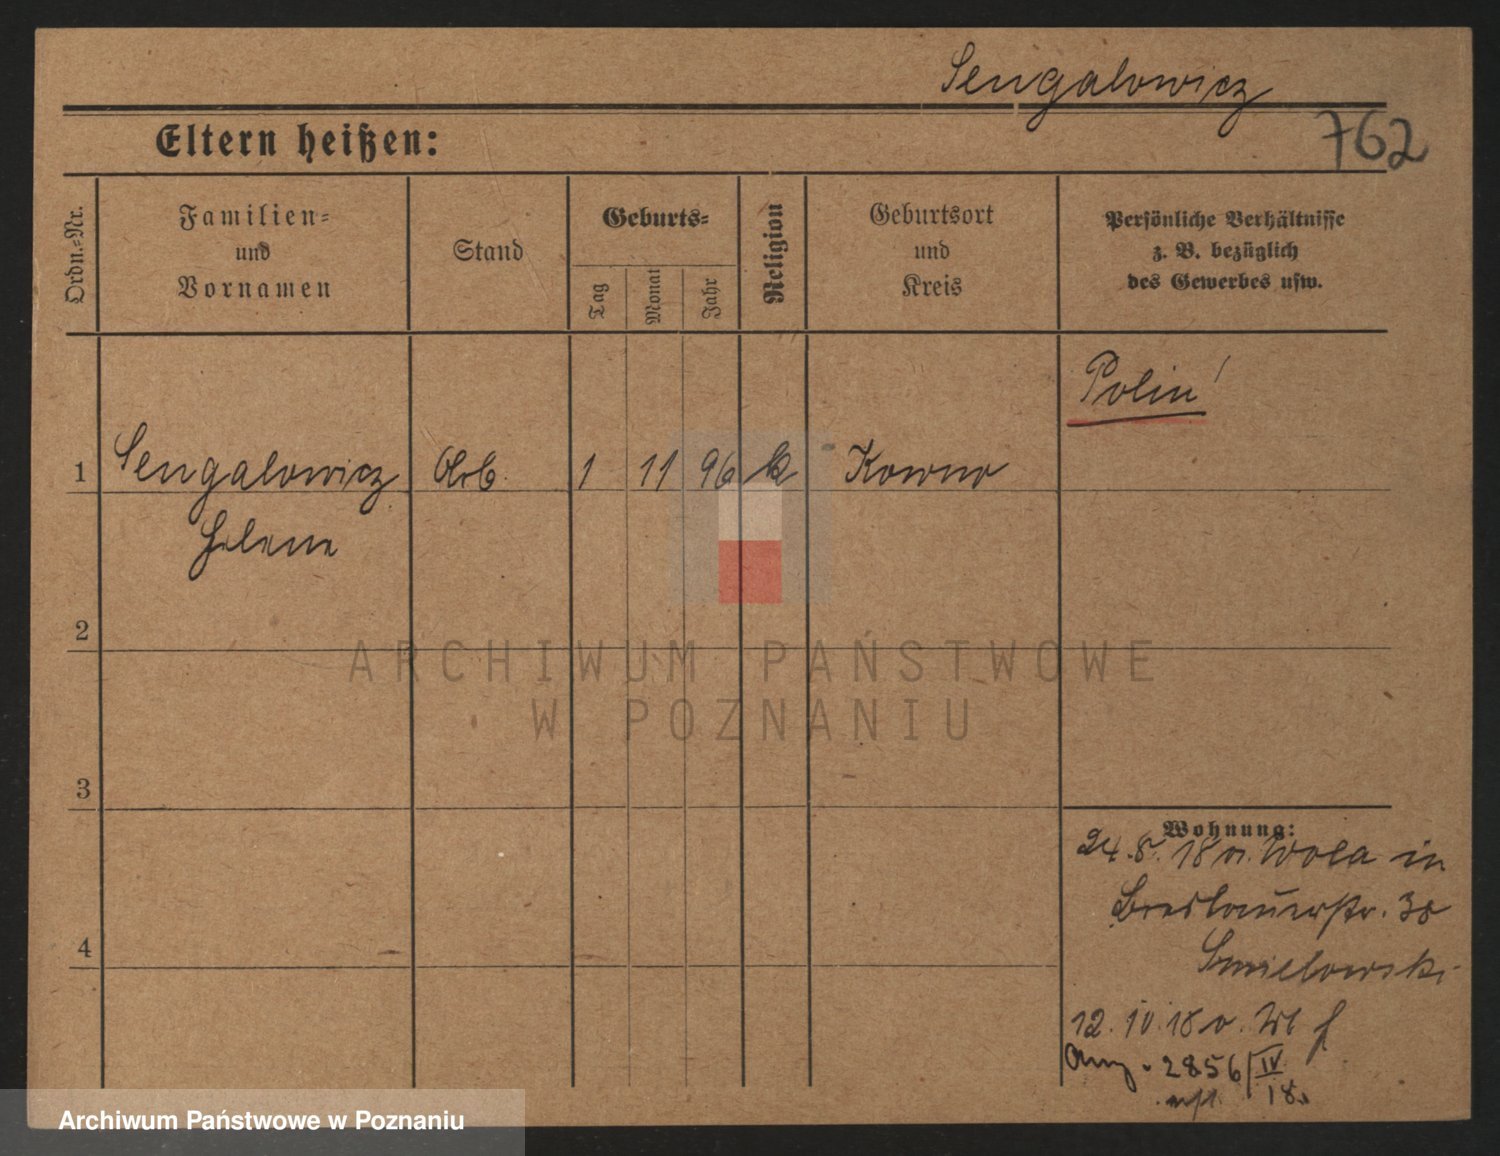 Sengalowicz
762
Eltern heißen:
Ordn.-Nr.
Familien-
und
Vornamen
Stand
Geburts-
Tag
Monat
Jahr
Religion
Geburtsort
und
Kreis
Persönliche Verhältnisse
z. B. bezüglich
des Gewerbes usw.
Polin
1 Sengalowicz Arb. 1 11 96 k Kowno
Helene
2
3
4
Wohnung:
24.8.18 v. Wola in
Breslauerstr. 38
Smielowski
12. 10. 18 v.
2856/IV
18.
ARCHIWUM PAŃSTWOWE
W POZNANIU
Archiwum Państwowe w Poznaniu